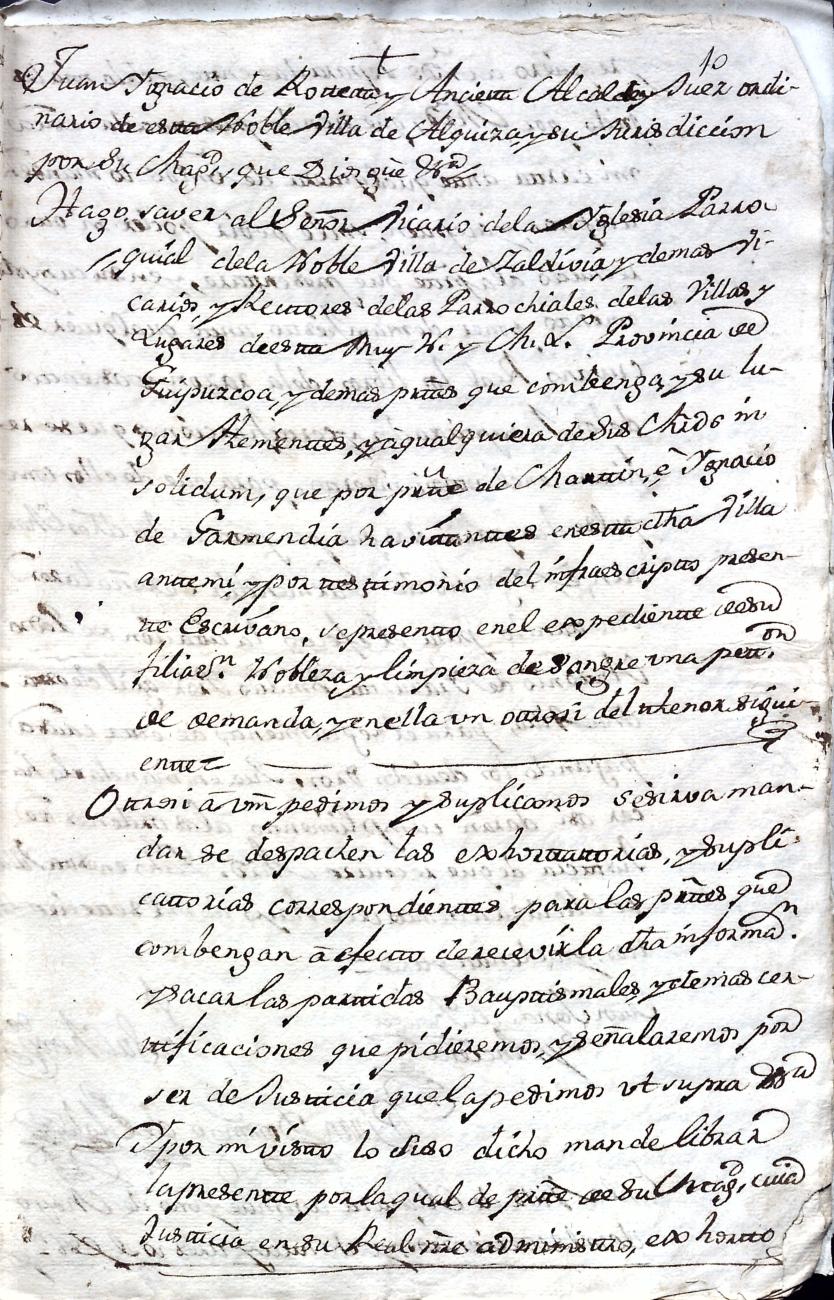 10
Juan Ygnacio de Rotteta y Ancieta Alcalde y Juez ordi-
nario de esta Noble Villa de Alquiza, y su Jurisdiccion
por Su Magd, que Dios gûe &ra
Hago saver al Señor Vicario dela Yglesia Parro
quial dela Noble Villa de Zaldivia, y demas Vi-
carios, y Rectores delas Parrochiales, delas Villas, y
Lugares de esta Muy N. y M. L. Provincia de
Guipuzcoa, y demas prttes que combenga, y su lu-
gar thenienttes, y à qualquiera de Sus Mrds in
solidum, que por prtte de Marttin, è Ygnacio
de Garmendia havitanttes en esta dha Villa
antte mi, y por testimonio del infraescripto presen-
te Escrivano, se presentto en el expediente de su
filiasn. Nobleza, y limpieza de Sangre una petton
de demanda, y en ella un ottrosi del thenor sigui-
entte
Ottrosi à Vm pedimos y suplicamos se sirva man-
dar se despachen las exhorttatorias, y supli-
cattorias correspondienttes para las prttes que
combengan à efectto de recevir la dha informan.
y sacar las parttidas Bauptismales, y demas cer-
ttificaciones que pidieremos, y señalaremos por
ser de Justicia que la pedimos ut supra &ra
Y por mi vistto lo suso dicho mande librar
la presentte por la qual de prtte de su Magd, cuia
Justicia en su Real nre administro, exhortto